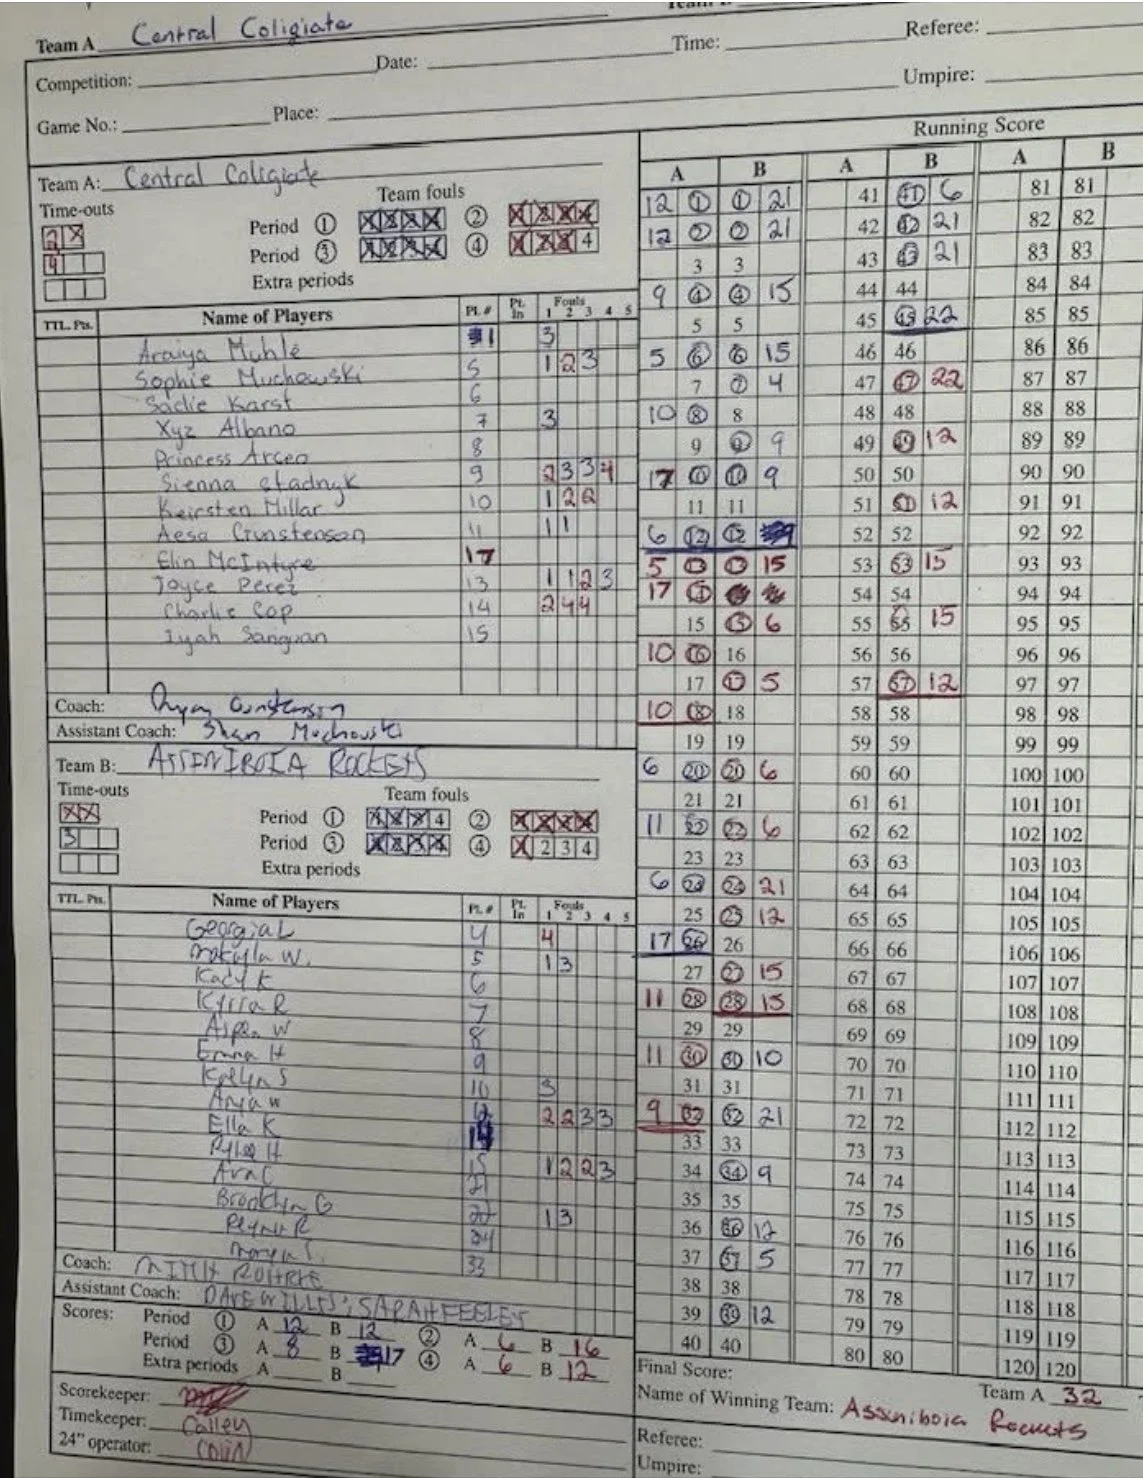 Team A Central Coligiate
Competition: Date: Time: Referee:
Game No.: Place: Umpire:
Team A: Central Coligiate
Time-outs Team fouls
Period ① ②
Period ③ ④ 4
Extra periods
TTL. Pts. Name of Players Pl. # Pt. In Fouls 1 2 3 4 5
Araiya Muhle 1 3
Sophie Muchowski 5 1 2 3
Sadie Karst 6
Xyz Albano 7 3
Princess Arceo 8
Sienna Stadnyk 9 2 3 3 4
Keirsten Millar 10 1 2 2
Aesa Gunstenson 11 1 1
Elin McIntyre 17
Joyce Perez 13 1 1 2 3
Charlie Cop 14 2 4 4
Iyah Sanguan 15
Coach:
Assistant Coach: Shan Muchowski
Team B: ASSINIBOIA ROCKETS
Time-outs Team fouls
Period ① 4 ②
Period ③ ④ 2 3 4
Extra periods
TTL. Pts. Name of Players Pl. # Pt. In Fouls 1 2 3 4 5
Georgia L 4 4
Makylla W. 5 1 3
Kady K 6
Kyrra R 7
Aspen W 8
Emma H 9
Kaelyn S 10 3
Anja W 12 2 2 3 3
Ella K 14
Rylee H 15 1 2 2 3
Ava C 21
Brooklyn G 22 1 3
24
33
Coach: MITCH ROHRKE
Assistant Coach: DAVE WILLIS; SARAH FEELEY
Scores: Period ① A 12 B 12 ② A 6 B 16
Period ③ A 8 B 17 ④ A 6 B 12
Extra periods A B
Scorekeeper:
Timekeeper: Calley
24" operator: Colin
Running Score
A B A B A B
12 1 1 21 41 41 6 81 81
12 2 2 21 42 42 21 82 82
3 3 43 43 21 83 83
9 4 4 15 44 44 84 84
5 5 45 45 22 85 85
5 6 6 15 46 46 86 86
7 7 4 47 47 22 87 87
10 8 8 48 48 88 88
9 9 9 49 49 12 89 89
17 10 10 9 50 50 90 90
11 11 51 51 12 91 91
6 12 12 9 52 52 92 92
5 13 13 15 53 53 15 93 93
17 14 54 54 94 94
15 15 6 55 55 15 95 95
10 16 16 56 56 96 96
17 17 5 57 57 12 97 97
10 18 18 58 58 98 98
19 19 59 59 99 99
6 20 20 6 60 60 100 100
21 21 61 61 101 101
11 22 22 6 62 62 102 102
23 23 63 63 103 103
6 24 24 21 64 64 104 104
25 25 12 65 65 105 105
17 26 26 66 66 106 106
27 27 15 67 67 107 107
11 28 28 15 68 68 108 108
29 29 69 69 109 109
11 30 30 10 70 70 110 110
31 31 71 71 111 111
9 32 32 21 72 72 112 112
33 33 73 73 113 113
34 34 9 74 74 114 114
35 35 75 75 115 115
36 36 12 76 76 116 116
37 37 5 77 77 117 117
38 38 78 78 118 118
39 39 12 79 79 119 119
40 40 80 80 120 120
Final Score: Team A 32
Name of Winning Team: Assiniboia Rockets
Referee:
Umpire: